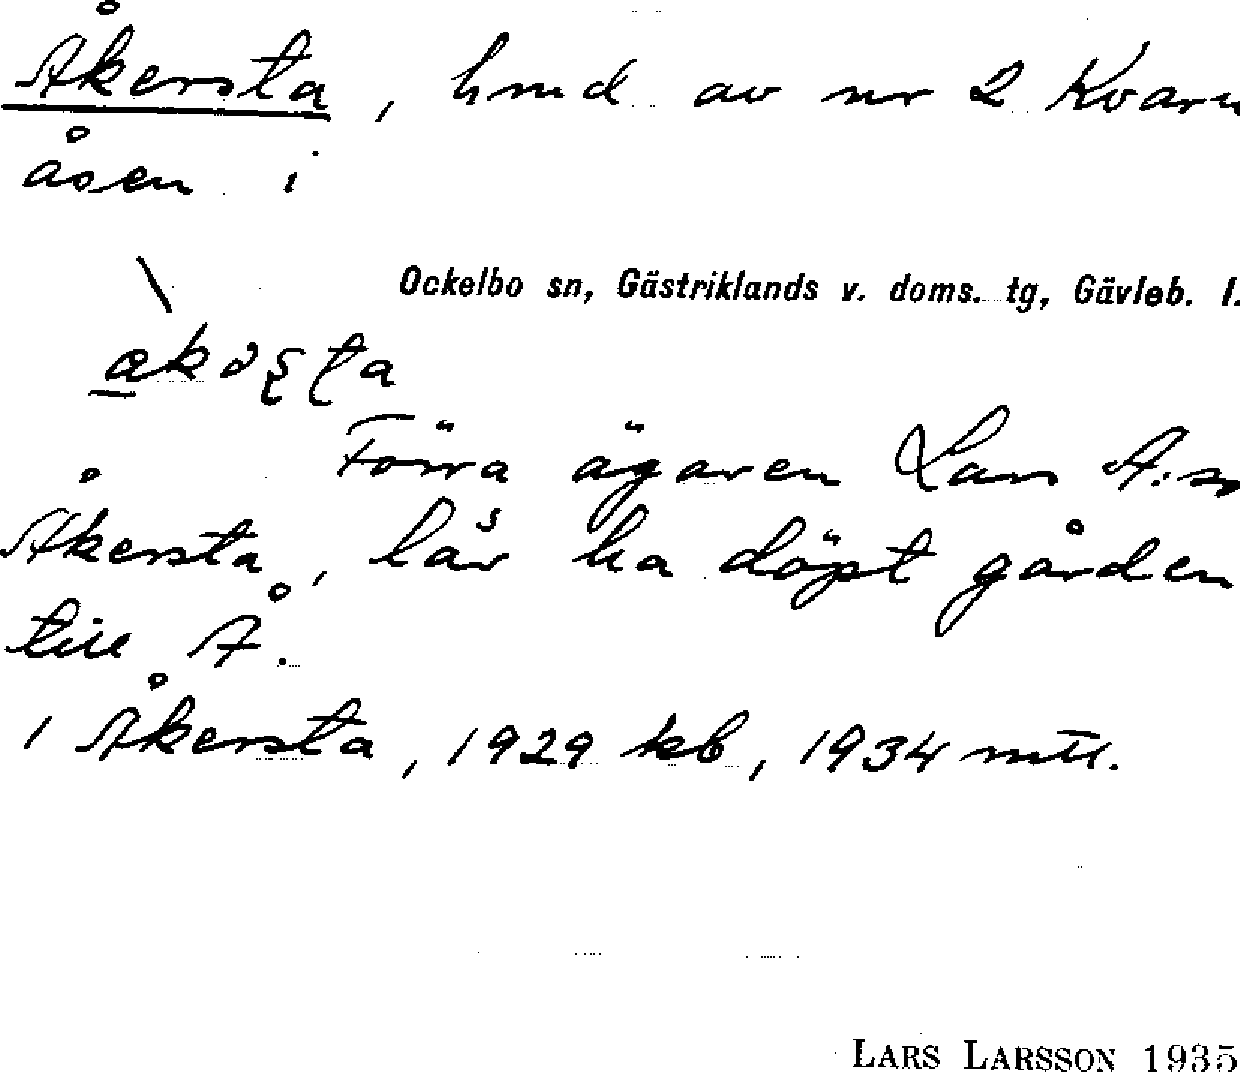 Åkersta, hmd av nr 2 Kvarn
åsen i
Ockelbo sn, Gästriklands v. doms. tg, Gävleb. l.
Förra ägaren Lars A:sn
Åkersta, lär ha döpt gården
till Å.
1 Åkersta, 1929 kb, 1934 mtl.
LARS LARSSON 1935